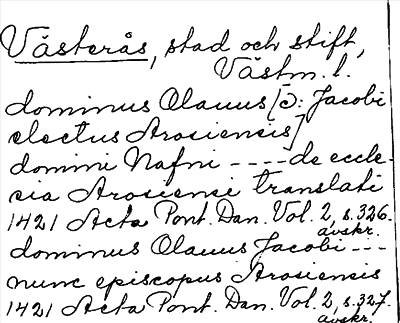 Västerås, stad och stift,
Västm. l.
dominus Olauus [ɔ: Jacobi
electus Arosiensis]
domini Nafni ---- de eccle-
sia Arosiensi translati
1421 Acta Pont. Dan. Vol. 2, s. 326.
avskr.
dominus Olauus Jacobi ---
nunc episcopus Arosiensis
1421 Acta Pont. Dan. Vol. 2, s. 327.
avskr.